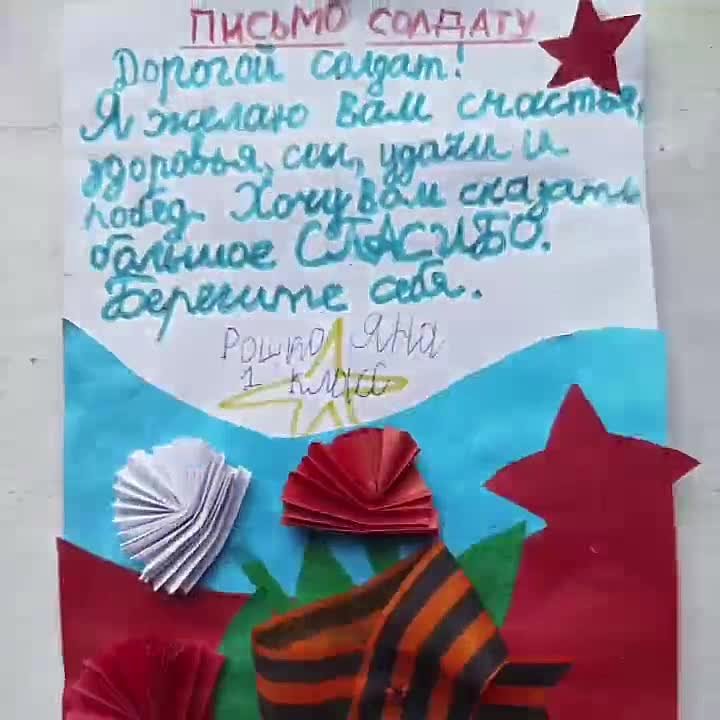 ПИСЬМО СОЛДАТУ
Дорогой солдат!
Я желаю вам счастья,
здоровья, сил, удачи и
побед. Хочу вам сказать
большое СПАСИБО.
Берегите себя.
Рошко Яна
1 класс